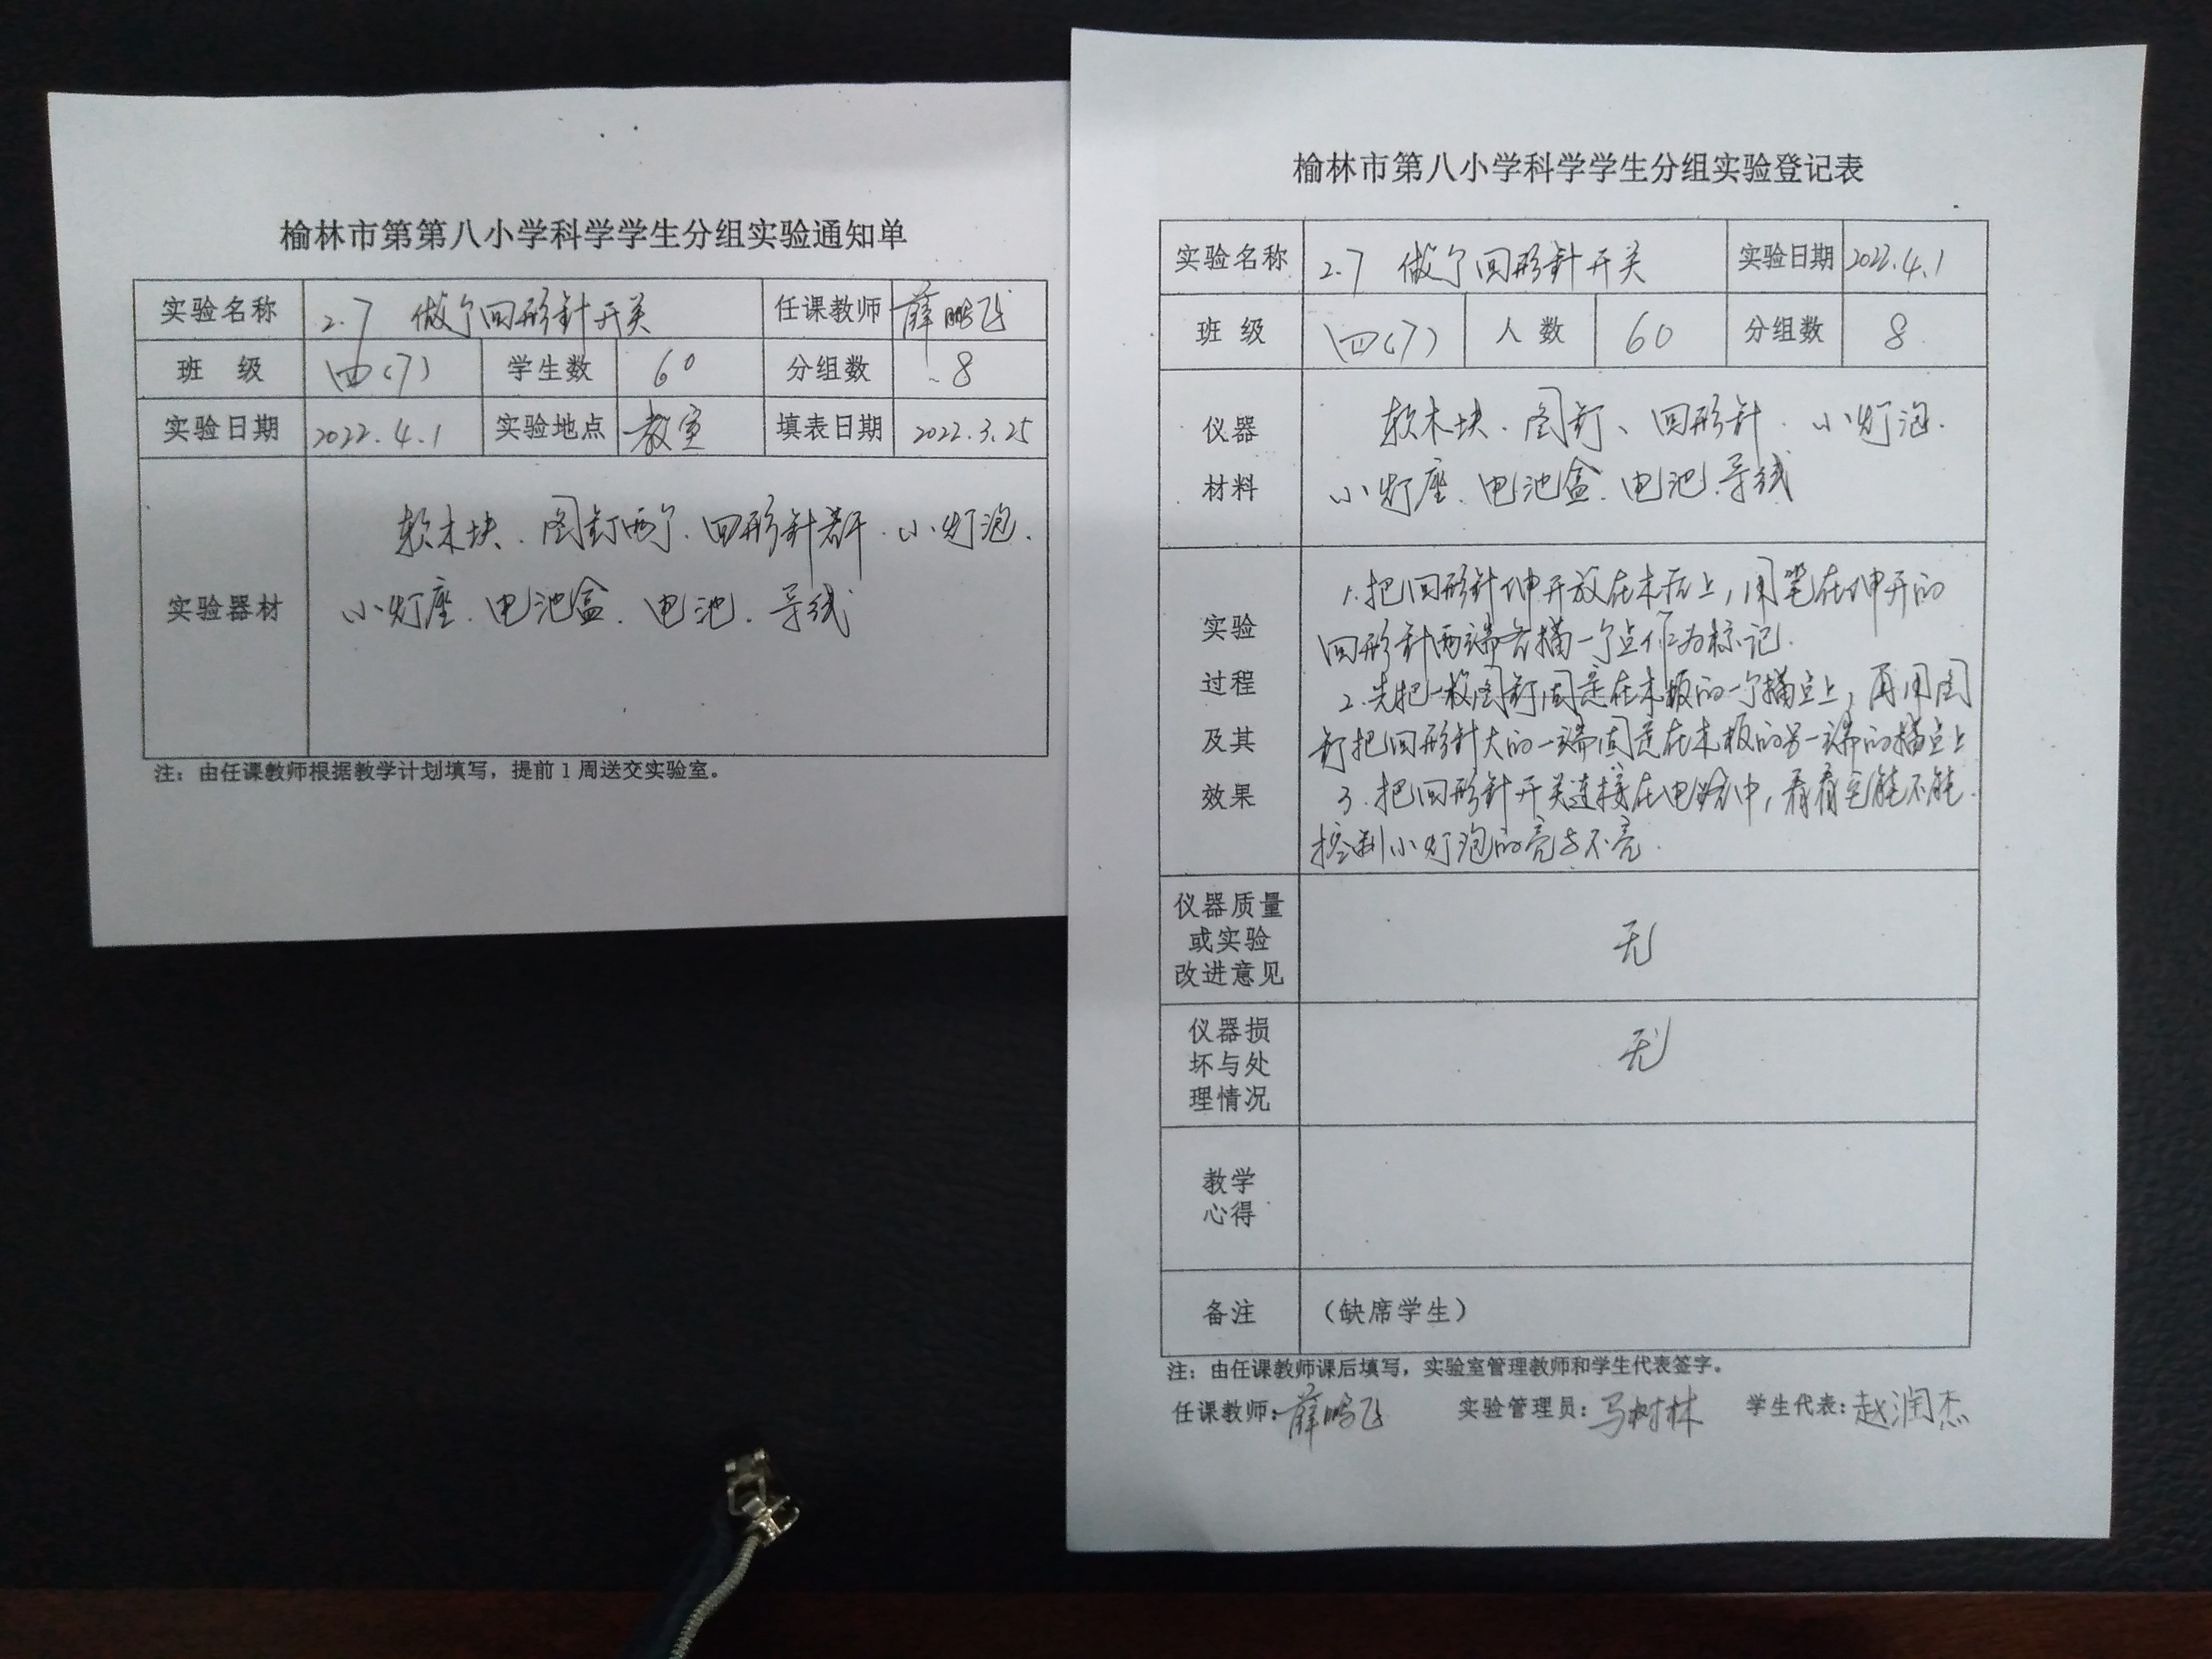 榆林市第第八小学科学学生分组实验通知单
实验名称 2.7 做个回形针开关 任课教师 薛鹏飞
班 级 四(7) 学生数 60 分组数 8
实验日期 2022.4.1 实验地点 教室 填表日期 2022.3.25
实验器材
软木块、图钉两个、回形针若干、小灯泡、
小灯座、电池盒、电池、导线
注：由任课教师根据教学计划填写，提前1周送交实验室。
榆林市第八小学科学学生分组实验登记表
实验名称 2.7 做个回形针开关 实验日期 2022.4.1
班 级 四(7) 人 数 60 分组数 8
仪器
材料
软木块、图钉、回形针、小灯泡、
小灯座、电池盒、电池、导线
实验
过程
及其
效果
1.把回形针伸开放在木板上，用笔在伸开的
回形针两端各描一个点作为标记.
2.先把一枚图钉固定在木板的一个描点上，再用图
钉把回形针大的一端固定在木板的另一端的描点上
3.把回形针开关连接在电路中，看看它能不能
控制小灯泡的亮与不亮.
仪器质量
或实验
改进意见
无
仪器损
坏与处
理情况
无
教学
心得
备注 （缺席学生）
注：由任课教师课后填写，实验室管理教师和学生代表签字。
任课教师：薛鹏飞 实验管理员：马树林 学生代表：赵润杰